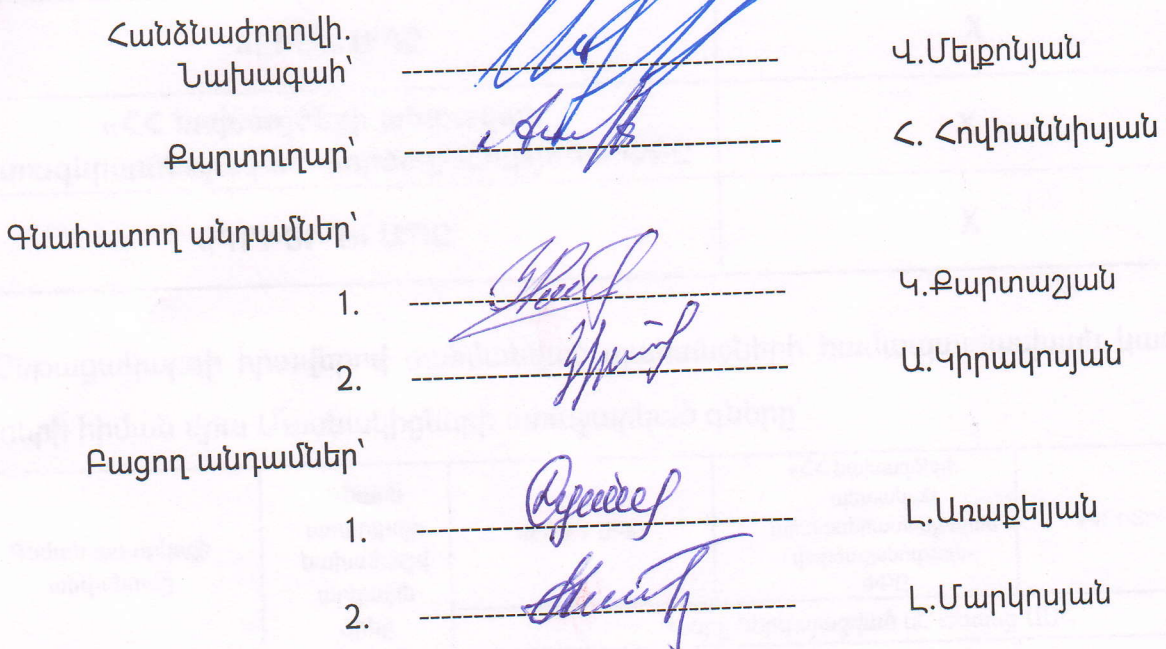 Հանձնաժողովի.
Նախագահ՝ Վ.Մելքոնյան
Քարտուղար՝ Հ. Հովհաննիսյան
Գնահատող անդամներ՝
1. Կ.Քարտաշյան
2. Ա.Կիրակոսյան
Բացող անդամներ՝
1. Լ.Առաքելյան
2. Լ.Մարկոսյան